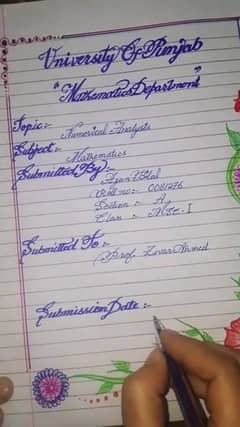 University Of Punjab
"Mathematics Department"
Topic:- Numerical Analysis
Subject:- Mathematics
Submitted By:- Azan Bilal
Roll no:- 0081276
Section :- A
Class :- MSC-I
Submitted To :-
Prof. Zorar Ahmed
Submission Date :-